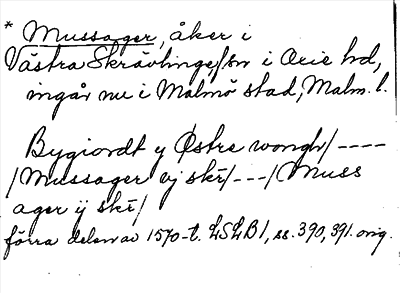 * Mussager, åker i
Västra Skrävlinge/sn i Oxie hd,
ingår nu i Malmö stad, Malm. l.
Bygiordt y Østre wongh/----
/Mussager vj skr/---/Muss
ager ij skr/
förra delen av 1570-t. LSLB1, ss. 390, 391. orig.